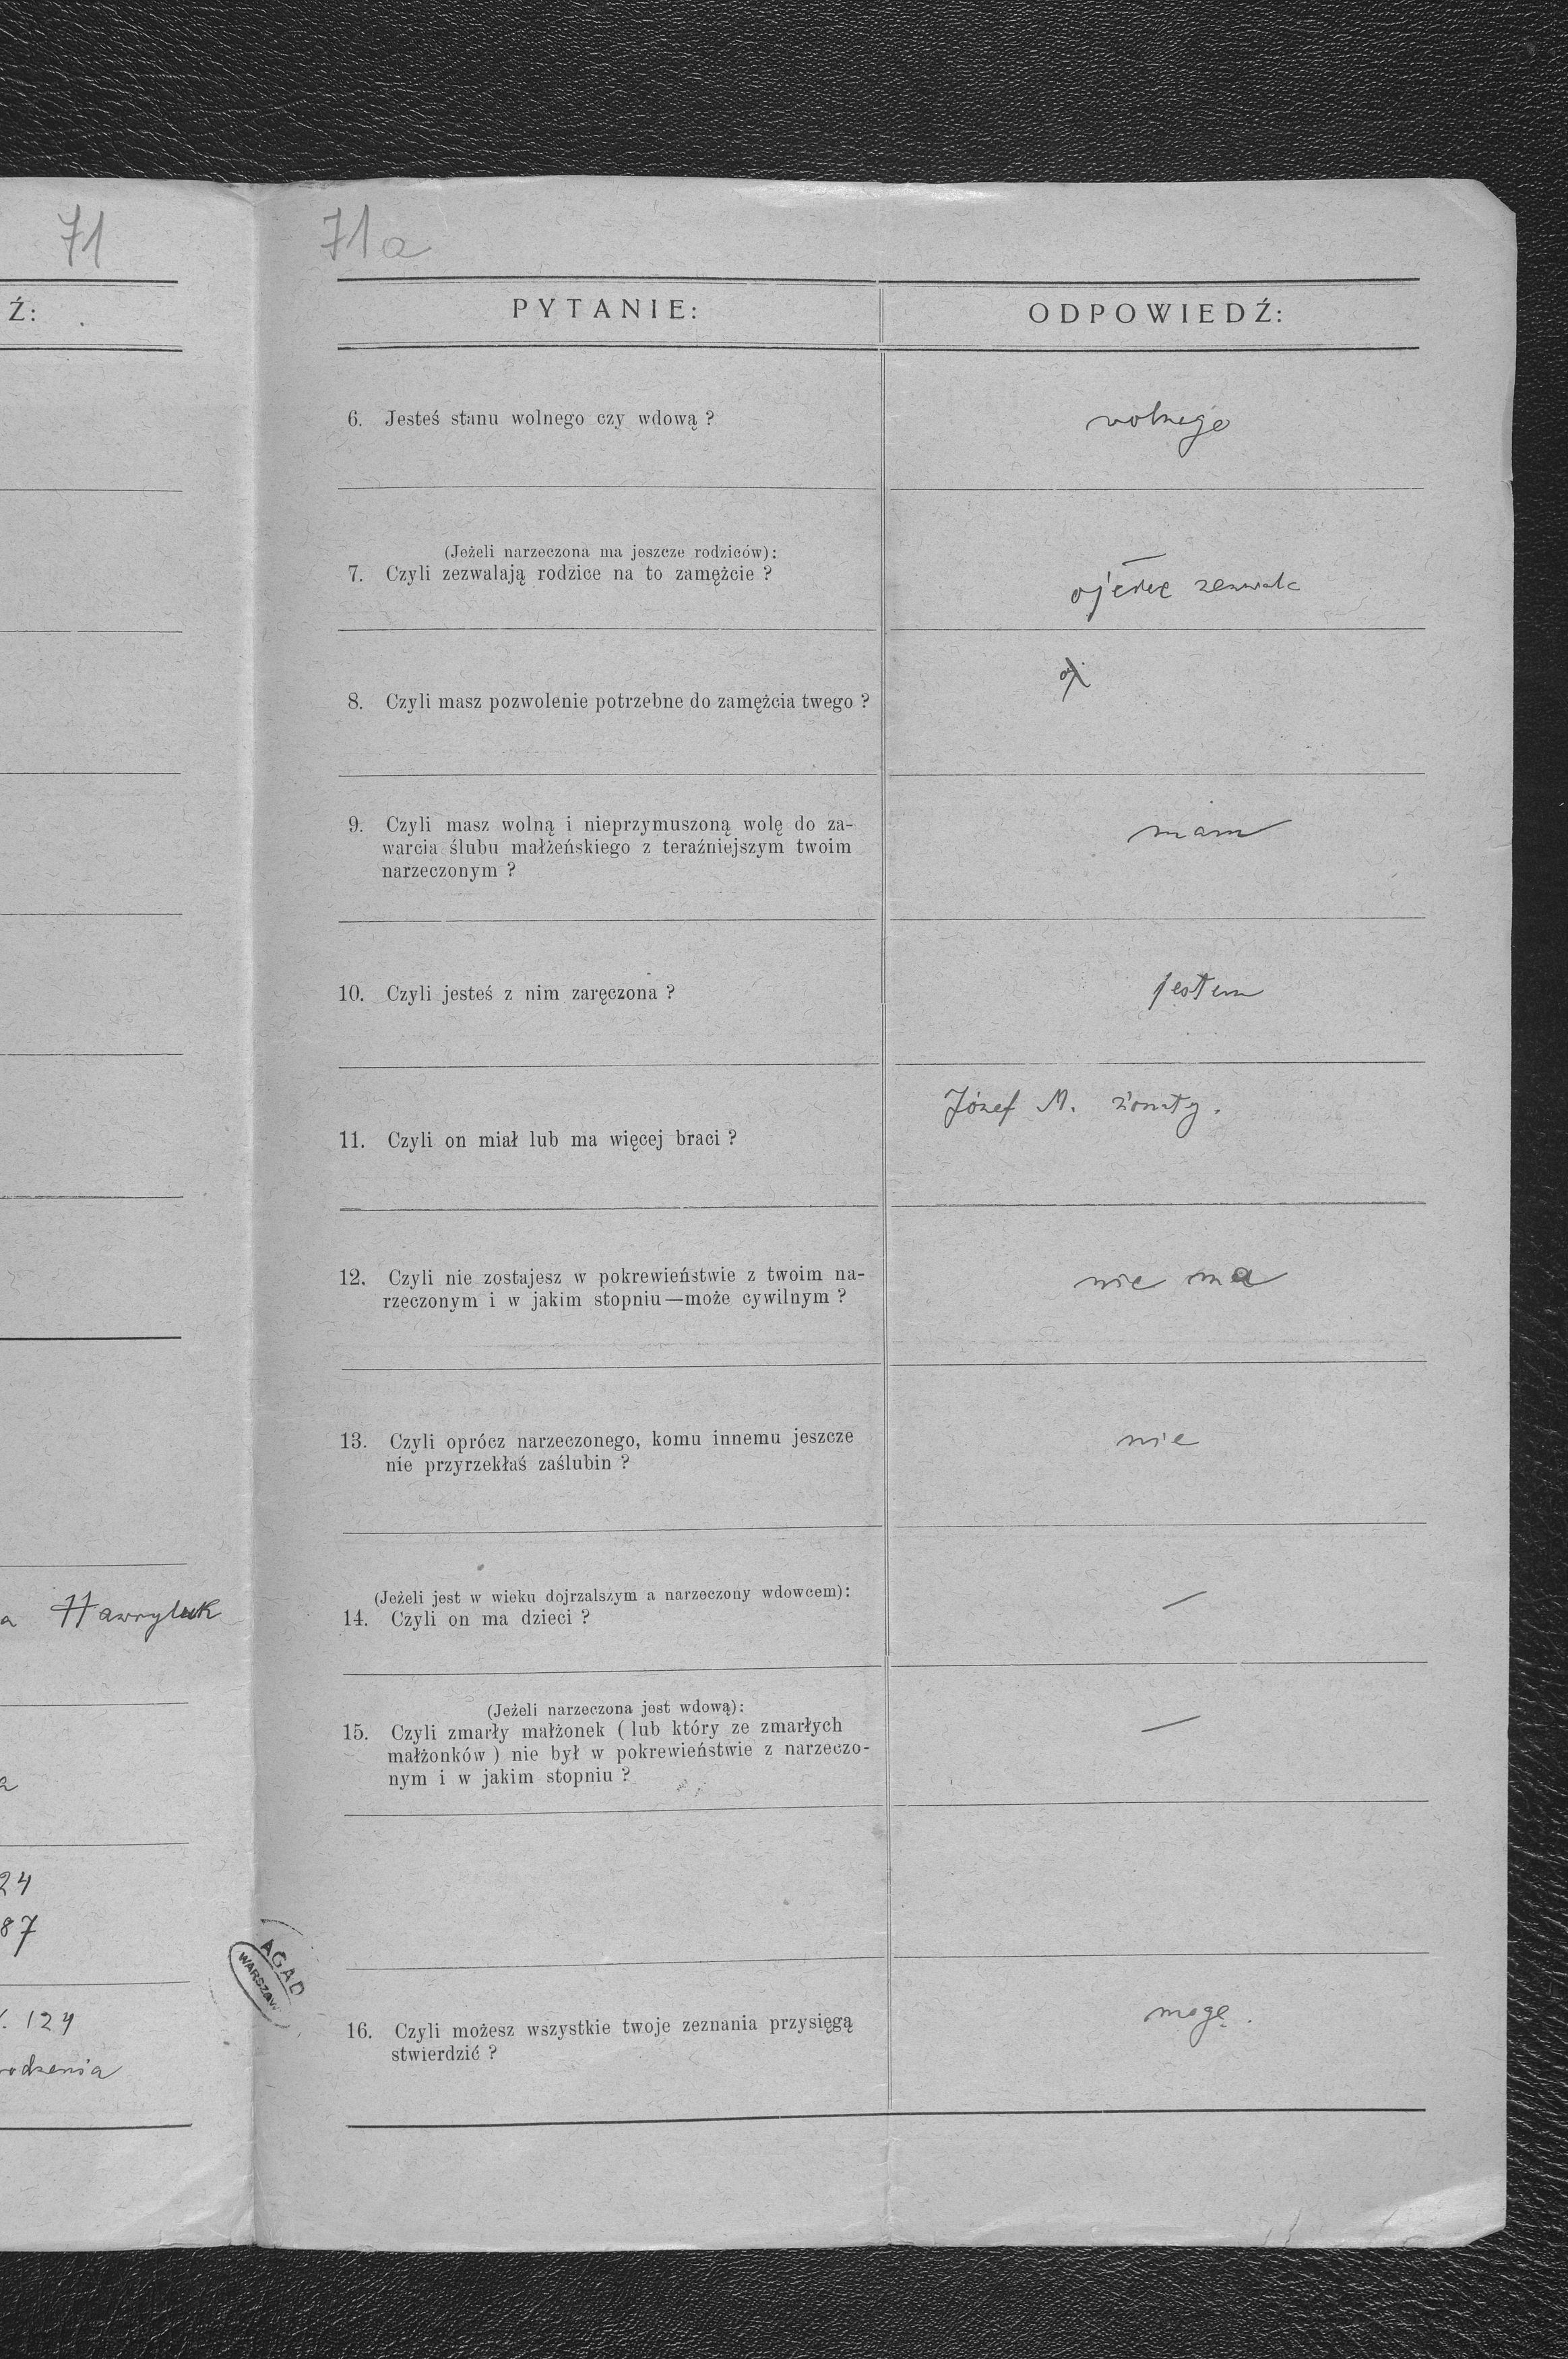 71
Ź:
a Hawryluk
24
87
124
71a
PYTANIE: ODPOWIEDŹ:
6. Jesteś stanu wolnego czy wdową ?
wolnego
(Jeżeli narzeczona ma jeszcze rodziców):
7. Czyli zezwalają rodzice na to zamęźcie ?
ojciec zezwala
8. Czyli masz pozwolenie potrzebne do zamęźcia twego ?
9. Czyli masz wolną i nieprzymuszoną wolę do za-
warcia ślubu małżeńskiego z teraźniejszym twoim
narzeczonym ?
mam
10. Czyli jesteś z nim zaręczona ?
jestem
11. Czyli on miał lub ma więcej braci ?
Józef M. żonaty.
12. Czyli nie zostajesz w pokrewieństwie z twoim na-
rzeczonym i w jakim stopniu—może cywilnym ?
nie ma
13. Czyli oprócz narzeczonego, komu innemu jeszcze
nie przyrzekłaś zaślubin ?
nie
(Jeżeli jest w wieku dojrzalszym a narzeczony wdowcem):
14. Czyli on ma dzieci ?
—
(Jeżeli narzeczona jest wdową):
15. Czyli zmarły małżonek ( lub który ze zmarłych
małżonków ) nie był w pokrewieństwie z narzeczo-
nym i w jakim stopniu ?
—
AGAD
WARSZAW
16. Czyli możesz wszystkie twoje zeznania przysięgą
stwierdzić ?
mogę.